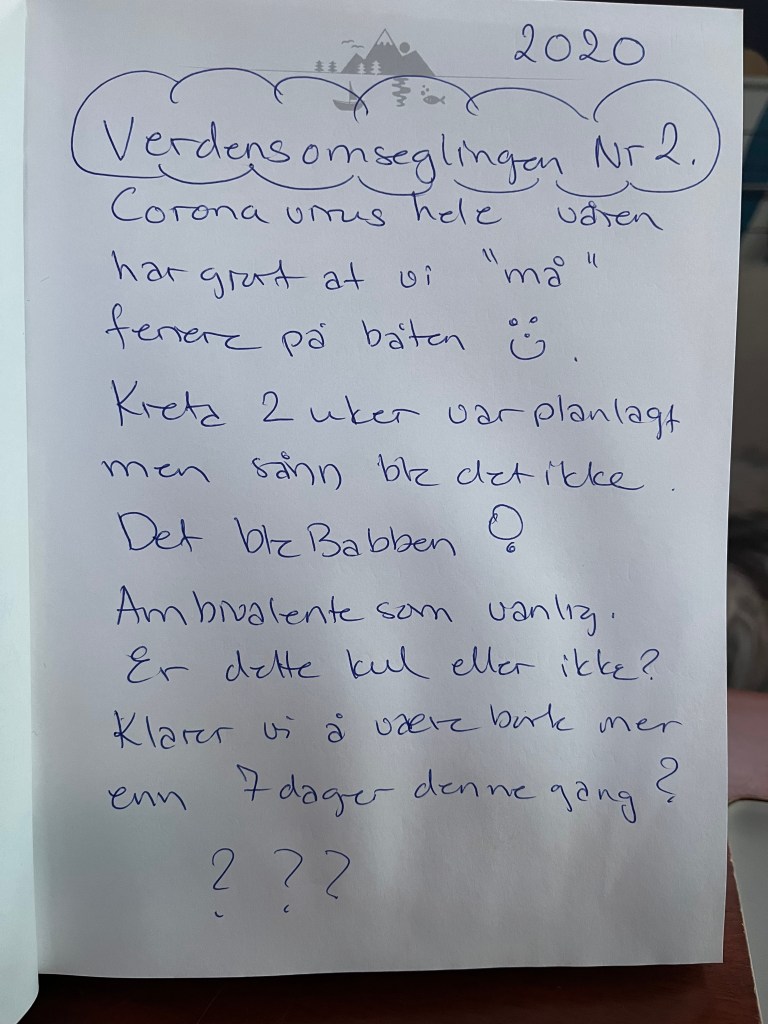 2020
Verdensomseglingen Nr 2.
Corona virus hele våren
har gjort at vi "må"
feriere på båten
Kreta 2 uker var planlagt
men sånn ble det ikke.
Det ble Babben
Ambivalente som vanlig.
Er dette kul eller ikke?
Klarer vi å være borte mer
enn 7 dager denne gang?
? ? ?